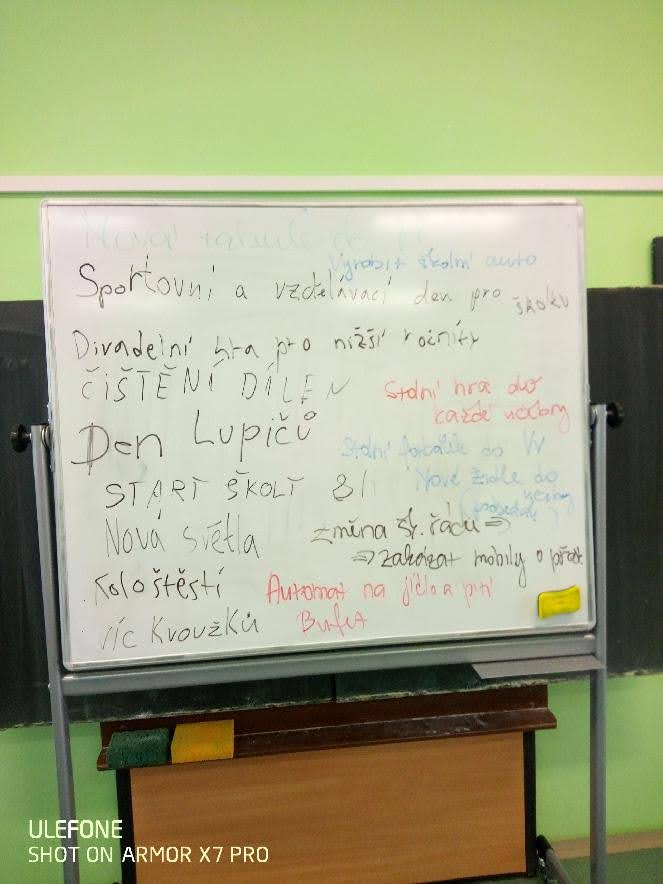 Nová
Vyrobit školní auto
Sportovní a vzdělávací den pro školu
Divadelní hra pro nižší ročníky
ČIŠTĚNÍ DÍLEN
Stolní hra do
každé učebny
Den Lupičů
Stolní fotbálek do
START ŠKOLY 8/
Nové židle do
Nová světla
změna šk. řádu ⇒
⇒ zakázat mobily o přest.
Kolo štěstí
Automat na jídlo a pití
víc Kroužků
Bufet
ULEFONE
SHOT ON ARMOR X7 PRO